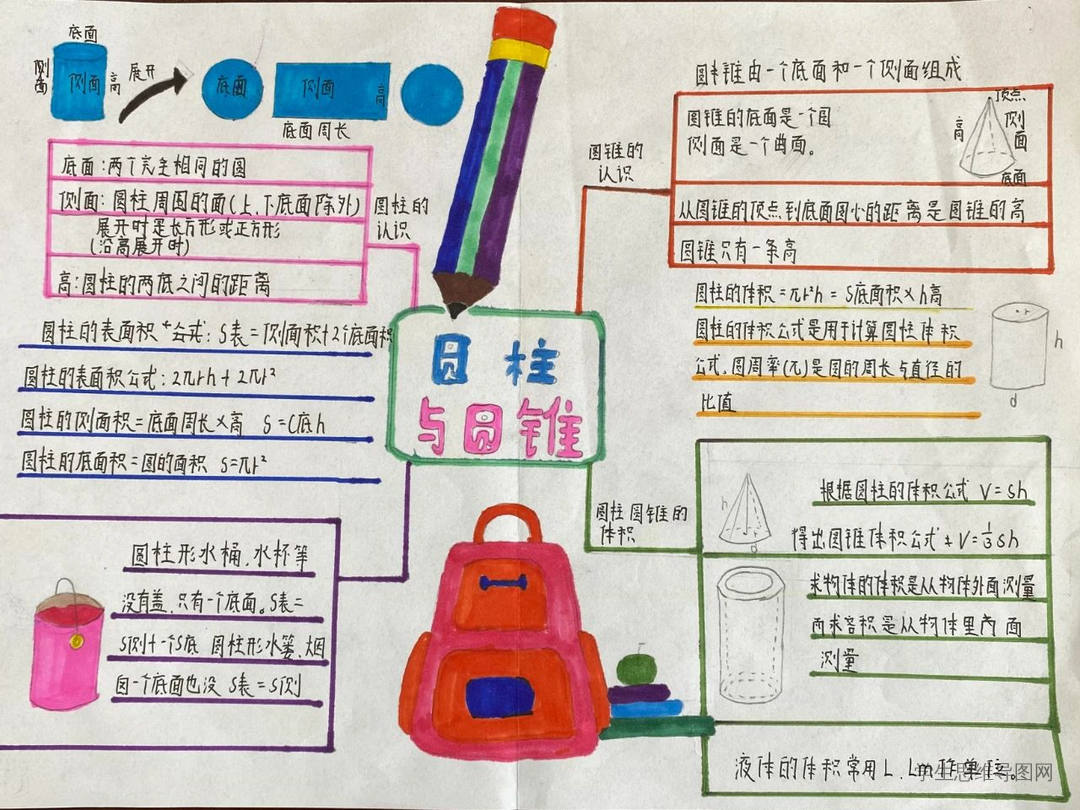 底面
侧面
高
侧面
高
展开
底面
侧面
高
底面周长
底面:两个完全相同的圆
侧面:圆柱周围的面(上、下底面除外)
展开时是长方形或正方形
(沿高展开时)
高:圆柱的两底之间的距离
圆柱的
认识
圆柱的表面积 公式:S表=侧面积+2个底面积
圆柱的表面积公式:2πrh+2πr²
圆柱的侧面积=底面周长×高 S=C底h
圆柱的底面积=圆的面积 S=πr²
圆柱
与圆锥
圆柱形水桶,水杯等
没有盖,只有一个底面。S表=
S侧+一个S底 圆柱形水篓、烟
囱一个底面也没 S表=S侧
圆锥的
认识
圆锥由一个底面和一个侧面组成
圆锥的底面是一个圆
侧面是一个曲面。
顶点
高
侧面
底面
从圆锥的顶点到底面圆心的距离是圆锥的高
圆锥只有一条高
圆柱的体积=πr²h=S底面积×h高
圆柱的体积公式是用于计算圆柱体积
公式,圆周率(π)是圆的周长与直径的
比值
r
h
d
圆柱圆锥的
体积
h
d
根据圆柱的体积公式 V=Sh
得出圆锥体积公式 V=⅓Sh
求物体的体积是从物体外面测量
而求容积是从物体里面
测量
液体的体积常用L、
学生思维导图网